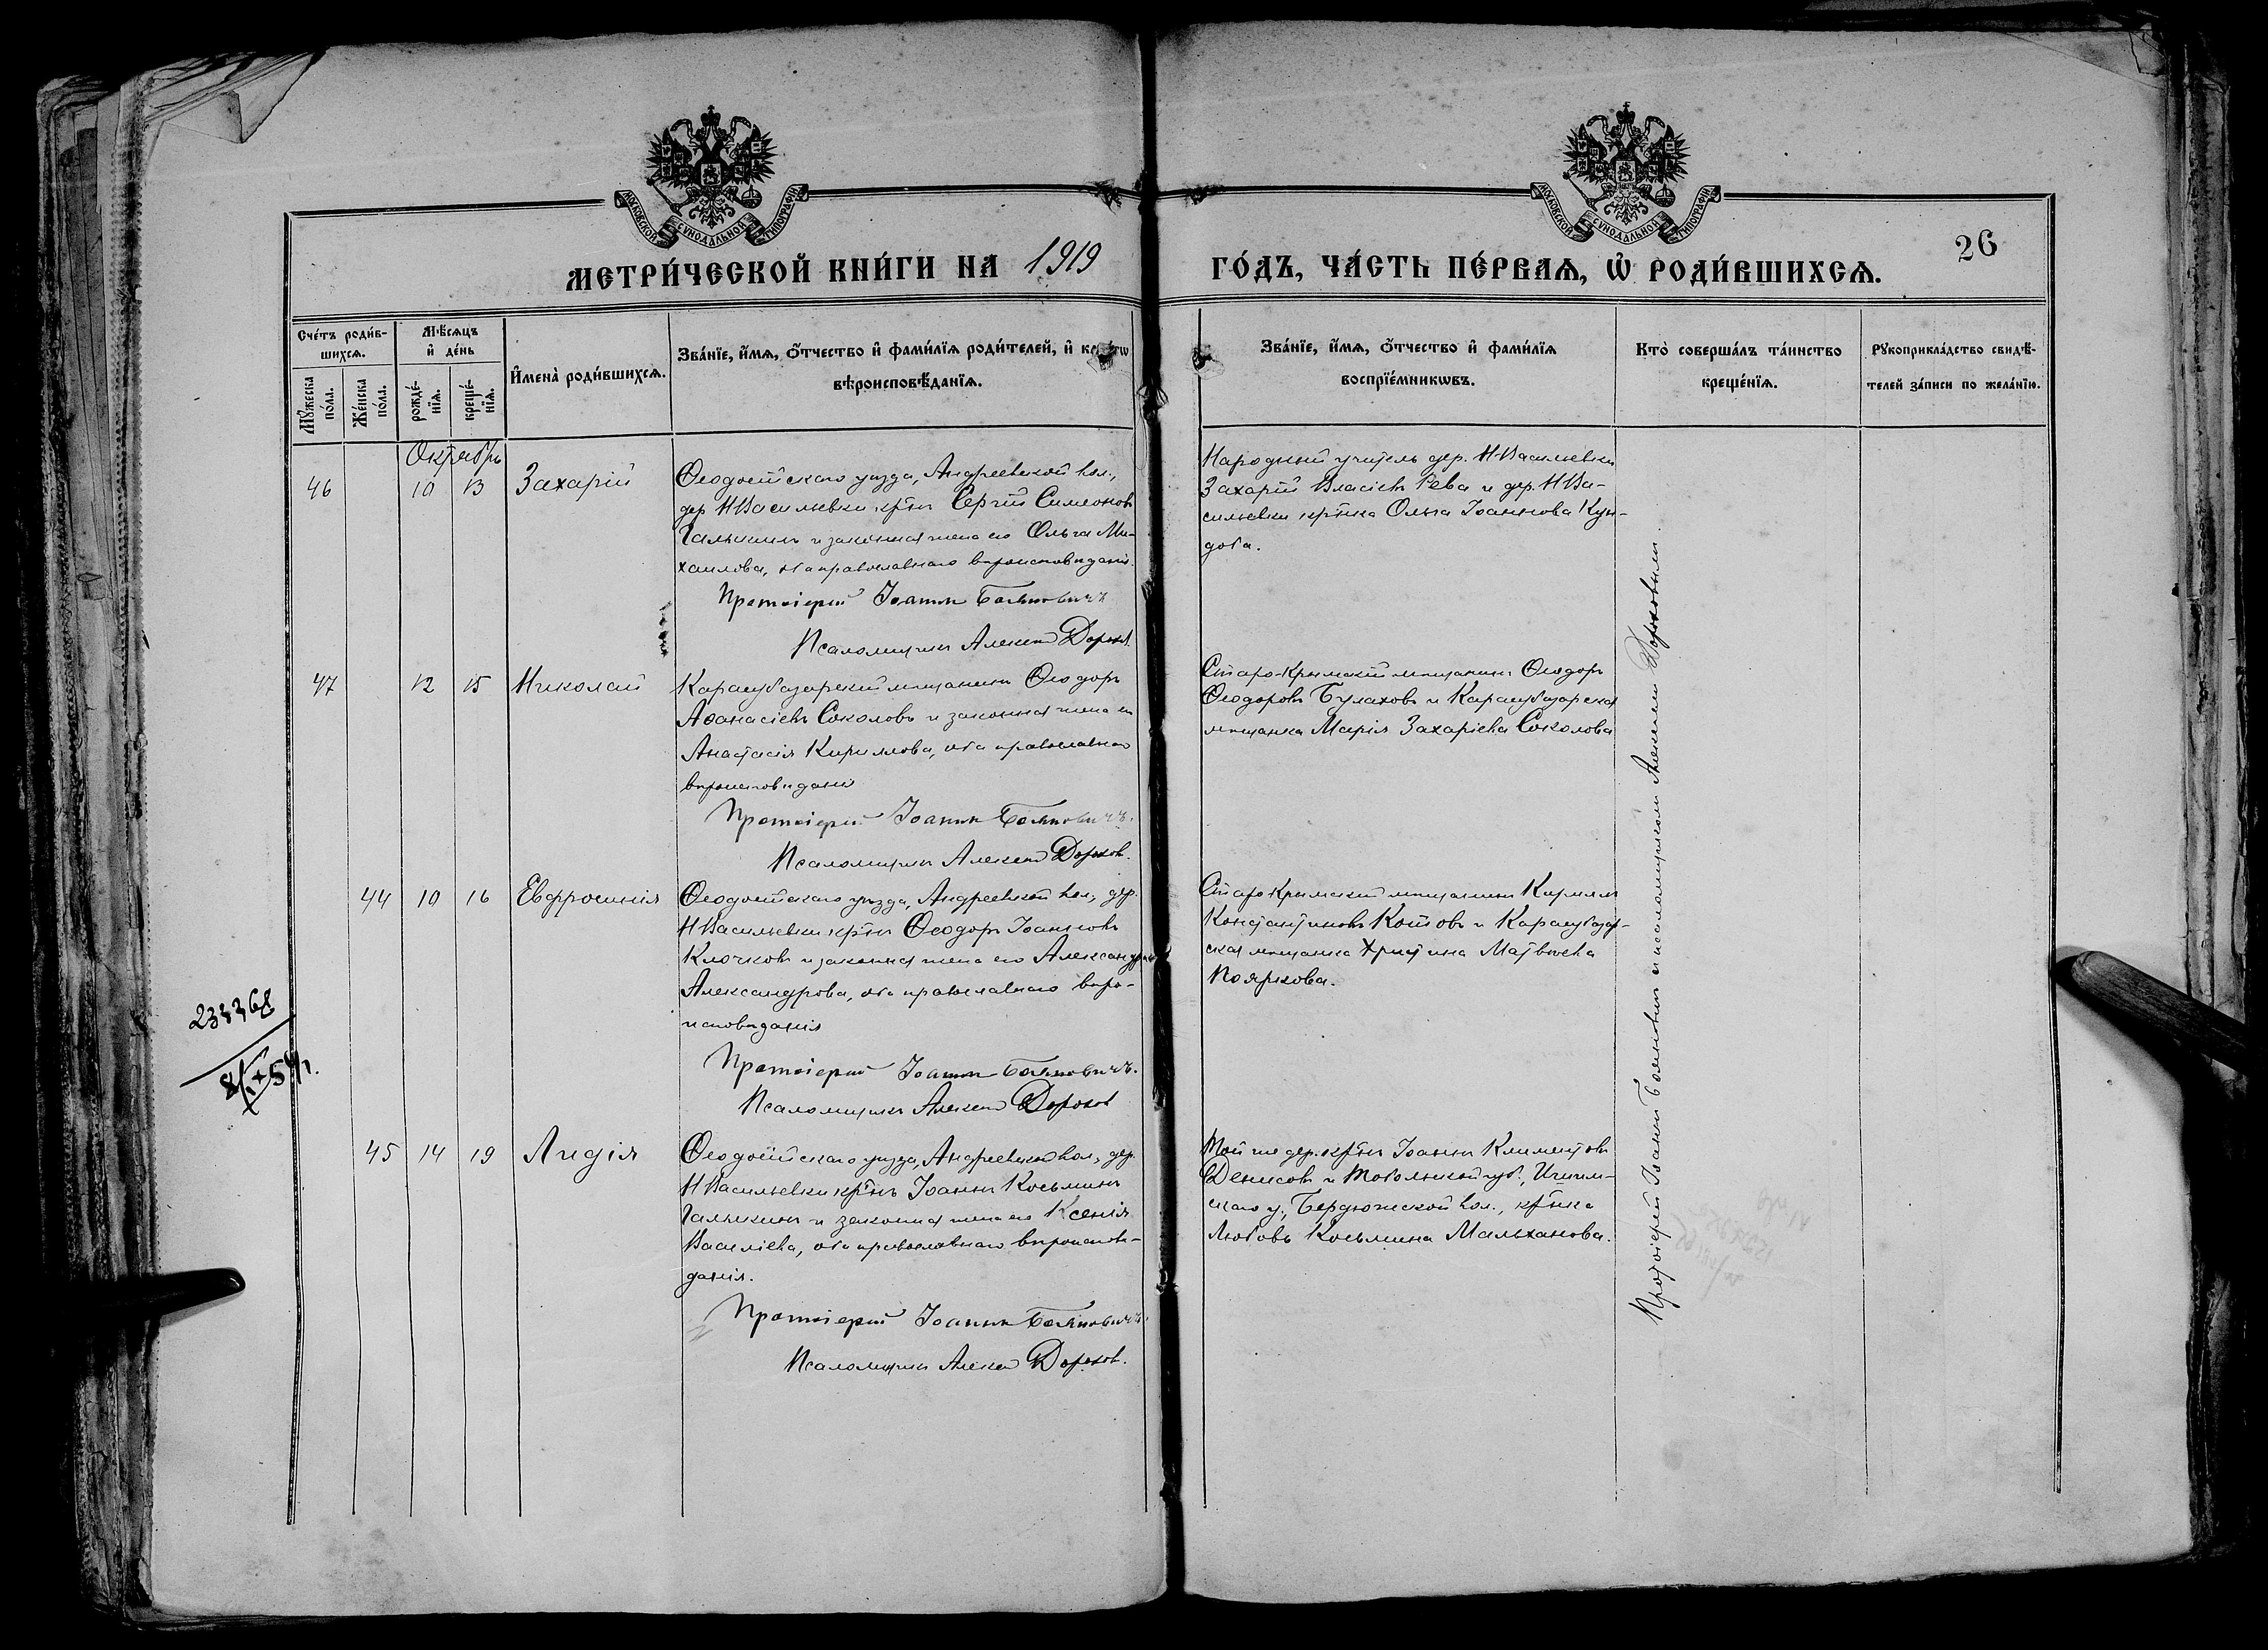 МОСКОВСКОЙ СѴНОДАЛЬНОЙ ТИПОГРАФІИ
МОСКОВСКОЙ СѴНОДАЛЬНОЙ ТИПОГРАФІИ
МЕТРИ́ЧЕСКОЙ КНИ́ГИ НА 1919
ГО́ДЪ, ЧА́СТЬ ПЕ́РВАѦ, Ѡ҆ РОДИ́ВШИХСѦ.
26
Сче́тъ роди́в-
шихсѧ.
Мꙋ́жеска по́ла.
Же́нска по́ла.
Мѣ́сѧцъ
и҆ де́нь
рожде́-
нїѧ.
креще́-
нїѧ.
И҆мена̀ роди́вшихсѧ.
Зва́нїе, и҆́мѧ, ѻ҆́тчество и҆ фами́лїѧ роди́телей, и҆
вѣроисповѣ́данїѧ.
Зва́нїе, и҆́мѧ, ѻ҆́тчество и҆ фами́лїѧ
воспрїе́мникѡвъ.
Кто̀ соверша́лъ та́инство
креще́нїѧ.
Рꙋкоприкла́дство свидѣ́-
телей за́писи по жела́нїю.
Октябрь
46 10 13 Захарій
Ѳеодосійскаго уѣзда, Андреевской вол.,
дер. НВасильевки крнъ Сергій Симеоновъ
Галыкинъ и законная жена его Ольга Ми-
хаилова, оба православнаго вѣроисповѣданія.
Протоіерей Іоаннъ
Псаломщикъ Алексій Дороховъ.
Народный учитель дер. Н-Васильевки
Захарій Власіевъ Рева и дер. НВа-
сильевки крнка Ольга Іоаннова Кун-
дова.
47 12 15 Николай
Карасубазарскій мѣщанинъ Ѳеодоръ
Аѳанасіевъ Соколовъ и законная жена его
Анастасія Кириллова, оба православнаго
вѣроисповѣданія
Протоіерей Іоаннъ
Псаломщикъ Алексій Дороховъ.
Старо-Крымскій мѣщанинъ Ѳеодоръ
Ѳеодоровъ Булаховъ и Карасубазарская
мѣщанка Марія Захаріева Соколова
44 10 16 Евфросинія
Ѳеодосійскаго уѣзда, Андреевской вол., дер.
НВасильевки крнъ Ѳеодоръ Іоанновъ
Клочковъ и законная жена его Александра
Александрова, оба православнаго вѣро-
исповѣданія
Протоіерей Іоаннъ
Псаломщикъ Алексій Дороховъ
Старо Крымскій мѣщанинъ Кириллъ
Константиновъ Котовъ и Карасубазар-
ская мѣщанка Христина Матвѣева
Пояркова.
45 14 19 Лидія
Ѳеодосійскаго уѣзда, Андреевской вол., дер.
НВасильевки крнъ Іоаннъ Косьминъ
Галыкинъ и законная жена его Ксенія
Василіева, оба православнаго вѣроисповѣ-
данія.
Протоіерей Іоаннъ
Псаломщикъ Алексій Дороховъ.
Той же дер. крнъ Іоаннъ Климентовъ
Денисовъ и Тобольской губ., Ишим-
скаго у., Бердюжской вол., крнка
Любовь Косьмина Мальханова.
Протоіерей Іоаннъ и псаломщикомъ Алексіемъ Дороховымъ